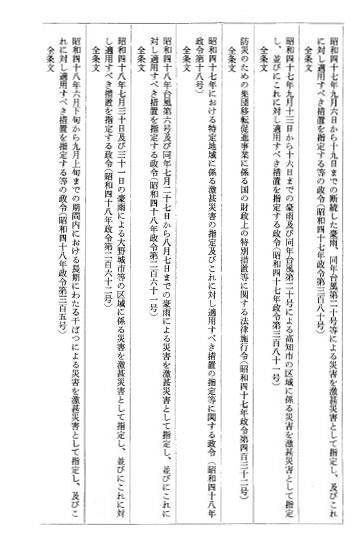 昭和四十七年九月六日から十九日までの断続した豪雨、同年台風第二十号等による災害を激甚災害として指定し、及びこれ
に対し適用すべき措置を指定する等の政令(昭和四十七年政令第三百八十号)
全条文
昭和四十七年九月十三日から十六日までの豪雨及び同年台風第二十号による高知市の区域に係る災害を激甚災害として指定
し、並びにこれに対し適用すべき措置を指定する政令(昭和四十七年政令第三百八十一号)
全条文
防災のための集団移転促進事業に係る国の財政上の特別措置等に関する法律施行令(昭和四十七年政令第四百三十二号)
全条文
昭和四十七年における特定地域に係る激甚災害の指定及びこれに対し適用すべき措置の指定等に関する政令(昭和四十八年
政令第十八号)
全条文
昭和四十八年台風第六号及び同年七月二十七日から八月七日までの豪雨による災害を激甚災害として指定し、並びにこれに
対し適用すべき措置を指定する政令(昭和四十八年政令第二百六十一号)
全条文
昭和四十八年七月三十日及び三十一日の豪雨による大野城市等の区域に係る災害を激甚災害として指定し、並びにこれに対
し適用すべき措置を指定する政令(昭和四十八年政令第二百六十二号)
全条文
昭和四十八年六月下旬から九月上旬までの期間内における長期にわたる干ばつによる災害を激甚災害として指定し、及びこ
れに対し適用すべき措置を指定する等の政令(昭和四十八年政令第三百五号)
全条文